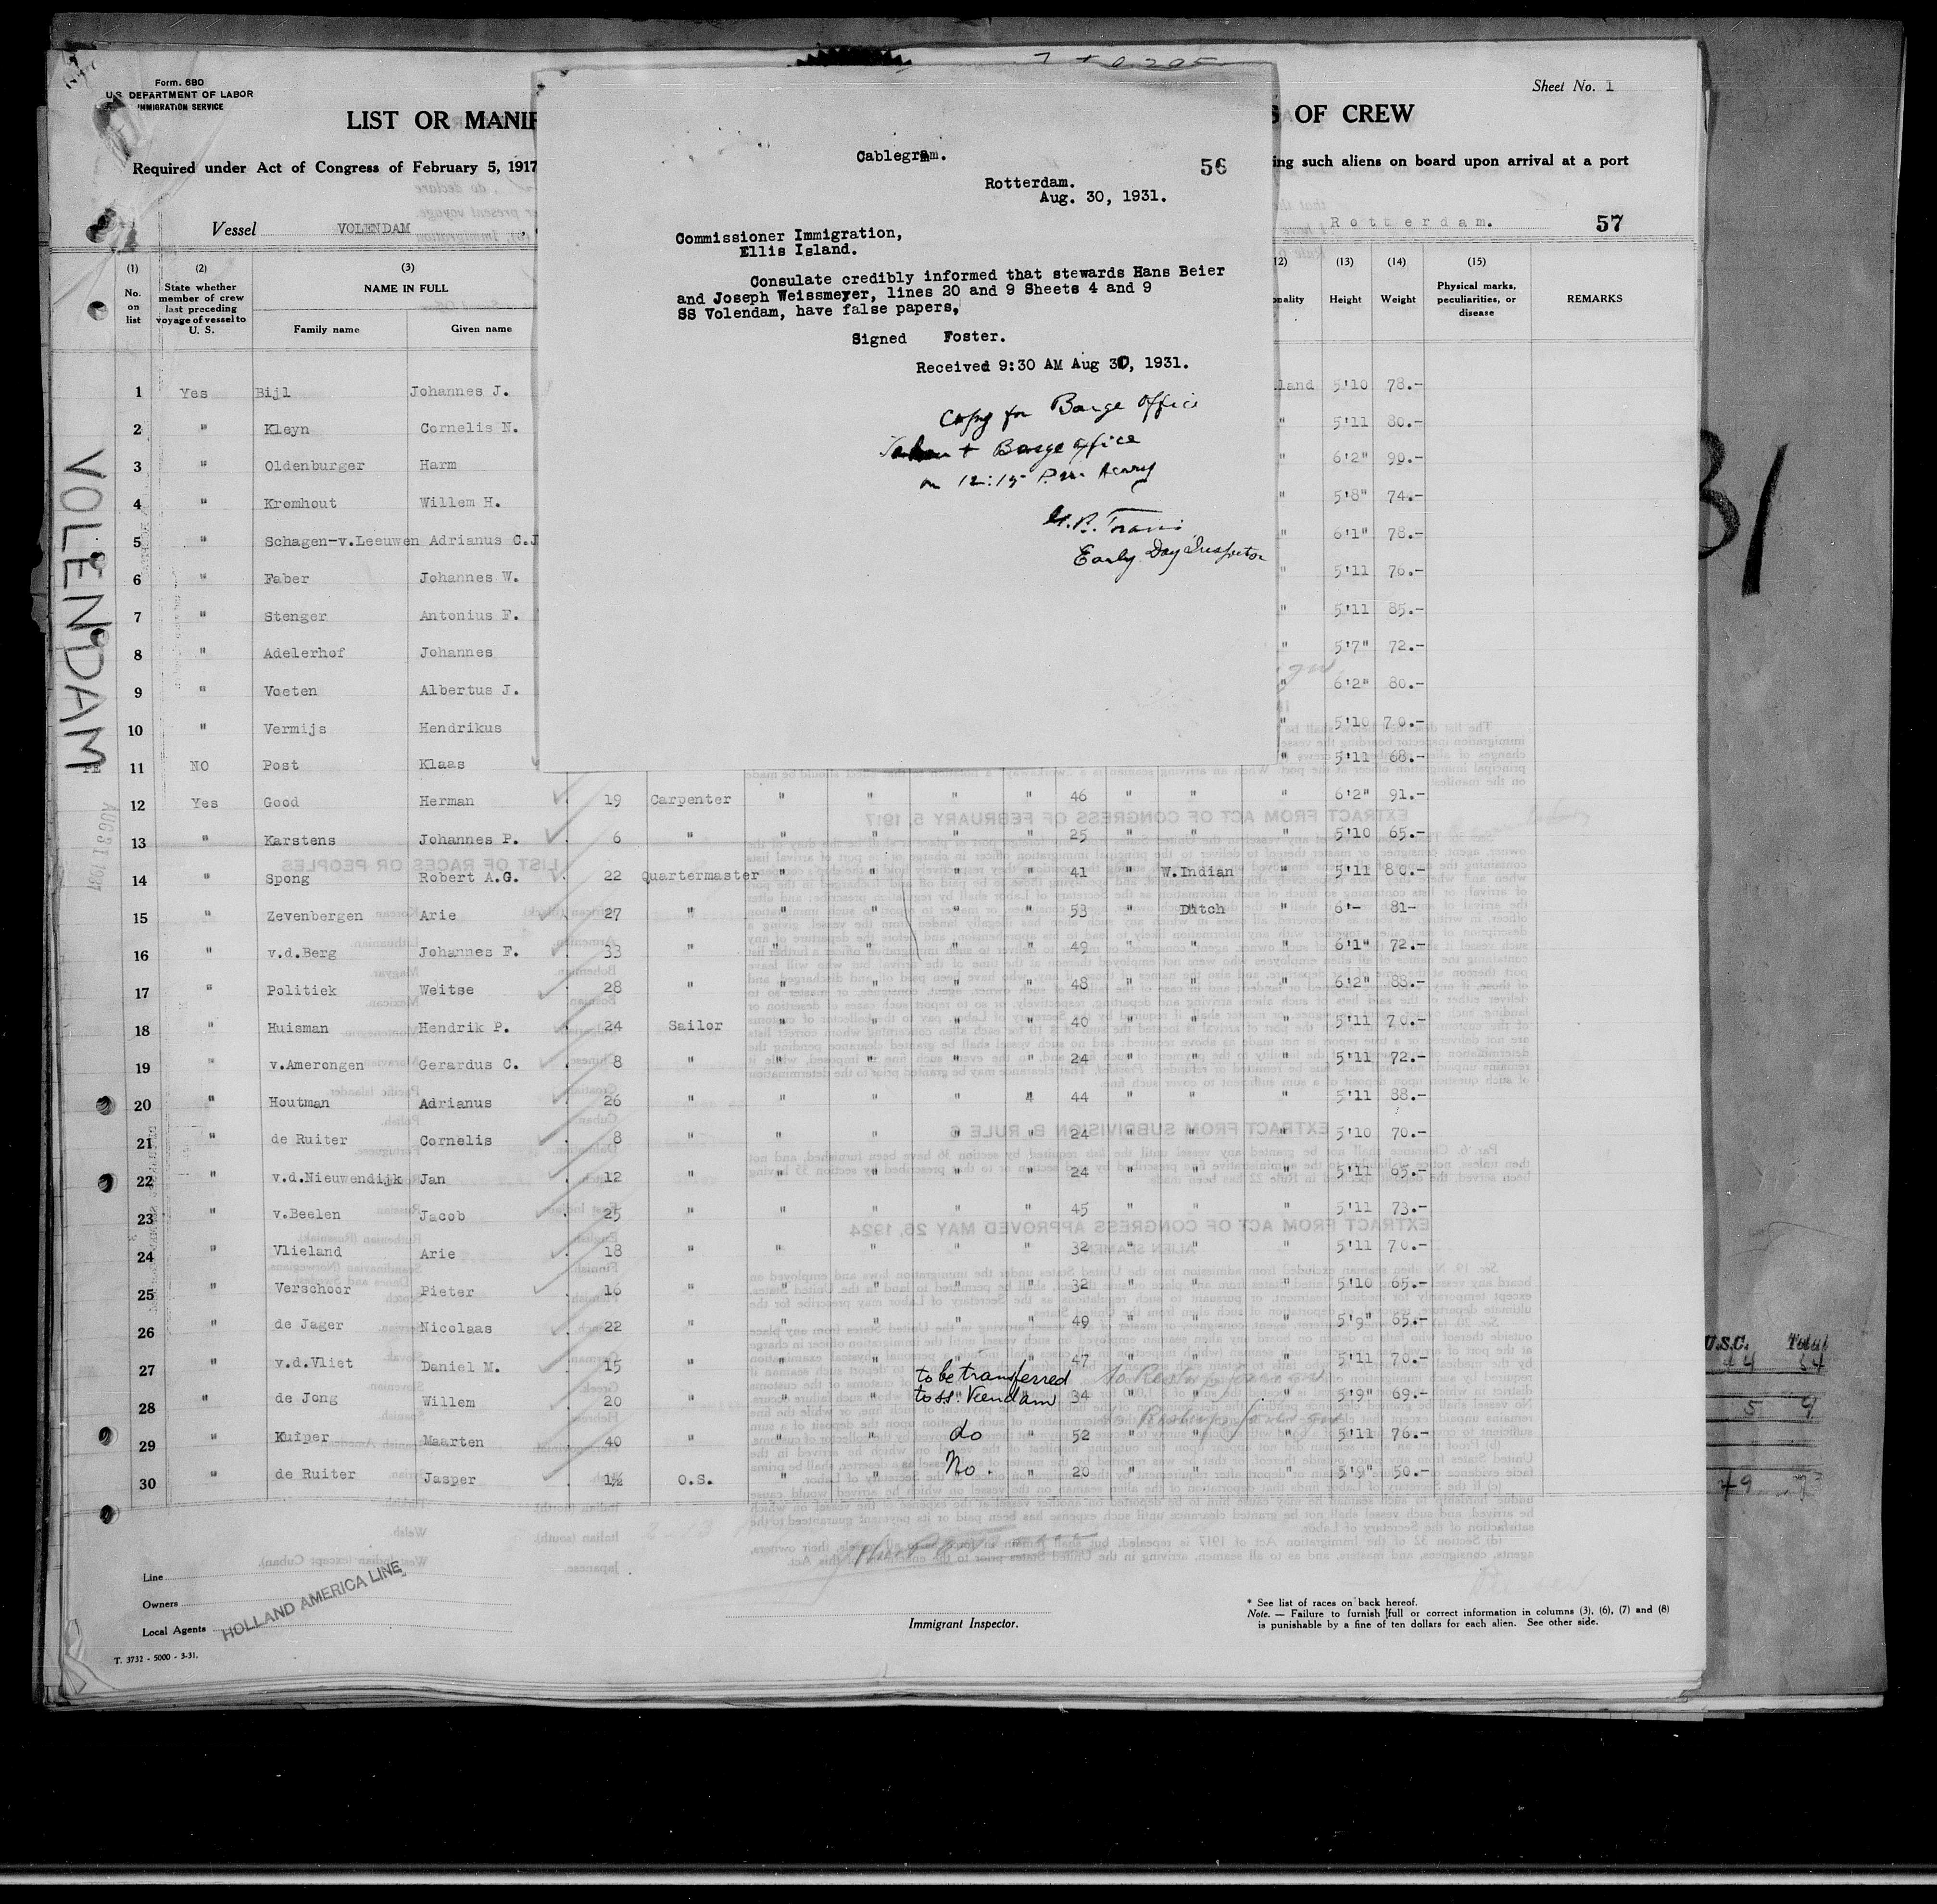 Form. 680
U.S. DEPARTMENT OF LABOR
IMMIGRATION SERVICE
Sheet No. 1
LIST OR MANIF
S OF CREW
Required under Act of Congress of February 5, 1917
ing such aliens on board upon arrival at a port
Vessel VOLENDAM
Rotterdam.
57
Cablegram.
56
Rotterdam.
Aug. 30, 1931.
Commissioner Immigration,
Ellis Island.
Consulate credibly informed that stewards Hans Beier
and Joseph Weissmeyer, lines 20 and 9 Sheets 4 and 9
SS Volendam, have false papers,
Signed Foster.
Received 9:30 AM Aug 30, 1931.
Copy for Barge Office
Barge Office
12:15 P.m.
Early Day Inspector
(1) (2) (3) 12) (13) (14) (15)
No. on list
State whether member of crew last preceding voyage of vessel to U. S.
NAME IN FULL
Family name Given name
onality Height Weight
Physical marks, peculiarities, or disease
REMARKS
1 Yes Bijl Johannes J. land 5'10 78.-
2 " Kleyn Cornelis N. " 5'11 80.-
3 " Oldenburger Harm " 6'2" 90.-
4 " Kromhout Willem H. " 5'8" 74.-
5 " Schagen-v.Leeuwen Adrianus C.J " 6'1" 78.-
6 " Faber Johannes W. " 5'11 76.-
7 " Stenger Antonius F. " 5'11 85.-
8 " Adelerhof Johannes " 5'7" 72.-
9 " Voeten Albertus J. " 6'2" 80.-
10 " Vermijs Hendrikus " 5'10 70.-
11 NO Post Klaas " 5'11 68.-
12 Yes Good Herman 19 Carpenter " " " " 46 " " " 6'2" 91.-
13 " Karstens Johannes P. 6 " " " " " 25 " " " 5'10 65.-
14 " Spong Robert A.G. 22 Quartermaster " " " " 41 " W.Indian " 5'11 80.-
15 " Zevenbergen Arie 27 " " " " " 53 " Dutch " 6'- 81-
16 " v.d.Berg Johannes F. 33 " " " " " 49 " " " 6'1" 72.-
17 " Politiek Weitse 28 " " " " " 48 " " " 6'2" 88.-
18 " Huisman Hendrik P. 24 Sailor " " " " 40 " " " 5'11 70.-
19 " v.Amerongen Gerardus C. 8 " " " " " 24 " " " 5'11 72.-
20 " Houtman Adrianus 26 " " " " " 44 " " " 5'11 88.-
21 " de Ruiter Cornelis 8 " " " " " 24 " " " 5'10 70.-
22 " v.d.Nieuwendijk Jan 12 " " " " " 24 " " " 5'11 65.-
23 " v.Beelen Jacob 25 " " " " " 45 " " " 5'11 73.-
24 " Vlieland Arie 18 " " " " " 32 " " " 5'11 70.-
25 " Verschoor Pieter 16 " " " " " 32 " " " 5'10 65.-
26 " de Jager Nicolaas 22 " " " " " 49 " " " 5'9" 65.-
27 " v.d.Vliet Daniel M. 15 " " " " " 47 " " " 5'11 70.-
to be transferred
28 " de Jong Willem 20 " " " to ss. Veendam 34 " " " 5'9" 69.-
29 " Kuiper Maarten 40 " " " do " 52 " " " 5'11 76.-
30 " de Ruiter Jasper 1½ O.S. " " No. " 20 " " " 5'9" 50.-
VOLENDAM
AUG 31 1931
31
U.S.C. Total
Line
Owners
Local Agents
HOLLAND AMERICA LINE
T. 3732 - 5000 - 3-31.
Immigrant Inspector.
* See list of races on back hereof.
Note. — Failure to furnish full or correct information in columns (3), (6), (7) and (8)
is punishable by a fine of ten dollars for each alien. See other side.